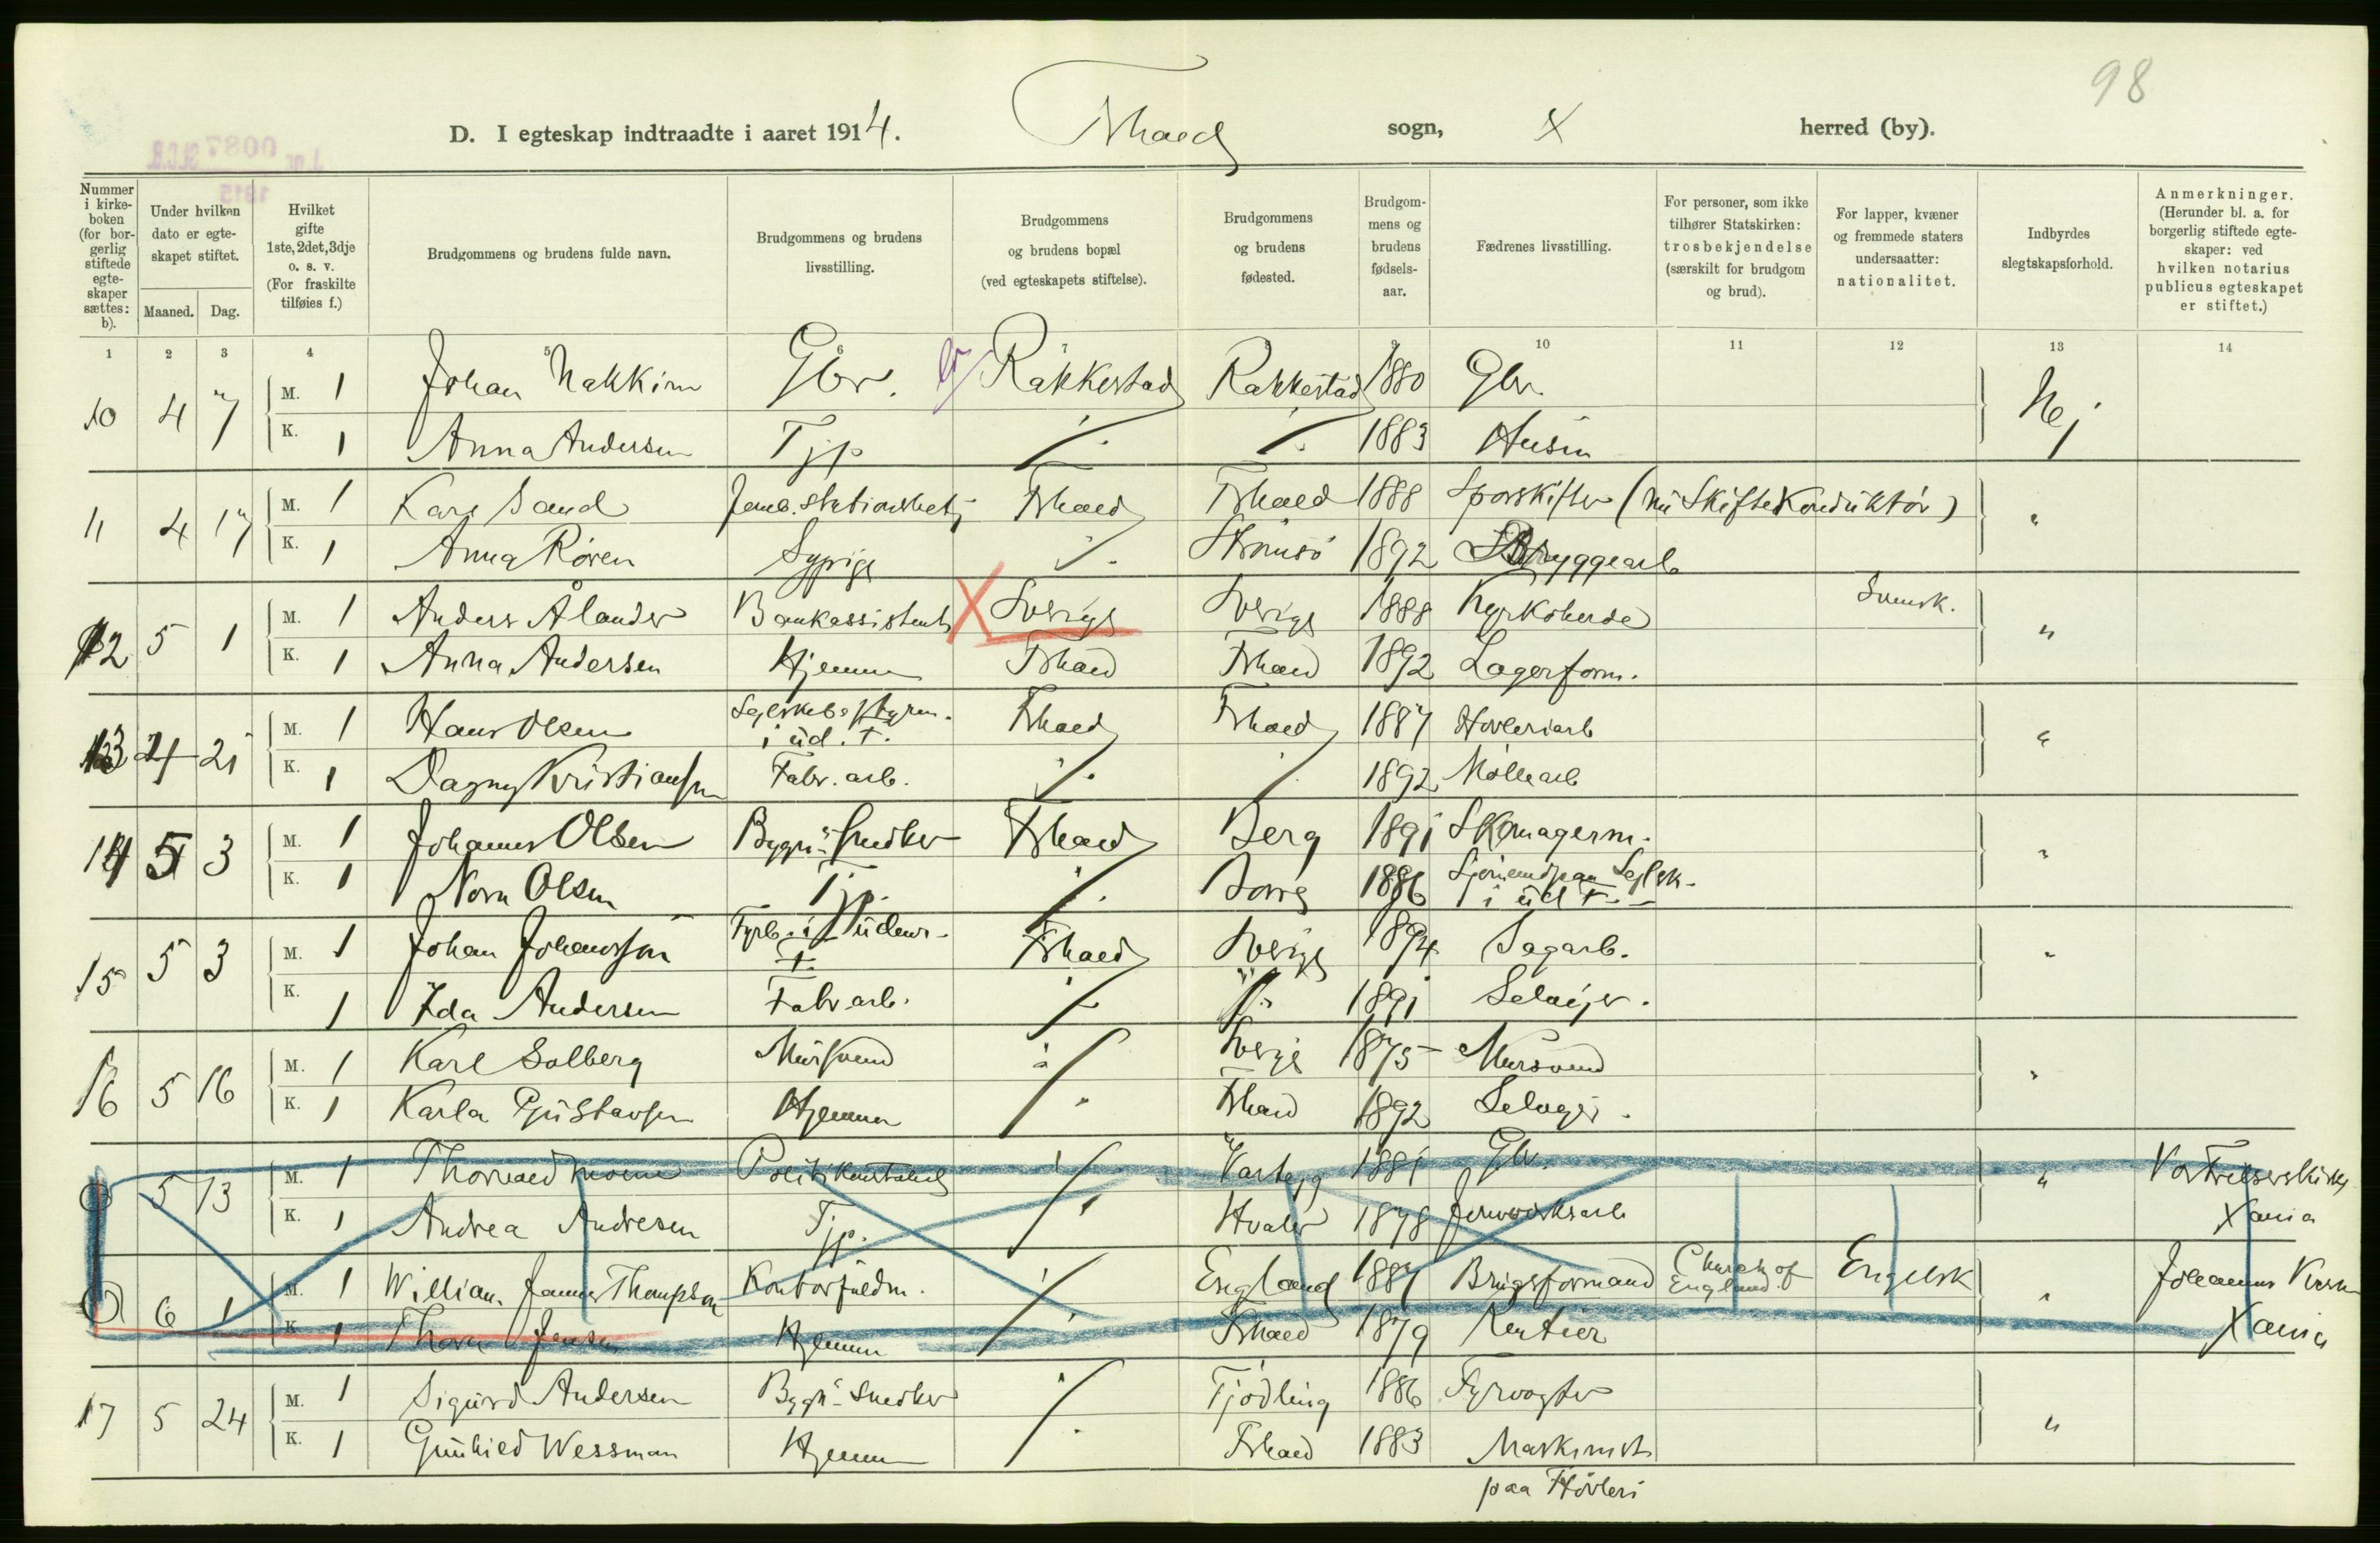 98
D. I egteskap indtraadte i aaret 1914. Frhald sogn, X herred (by).
Nummer i kirkeboken (for borgerlig stiftede egteskaper sættes: b).
Under hvilken dato er egteskapet stiftet.
Maaned. Dag.
Hvilket gifte 1ste, 2det, 3dje o. s. v. (For fraskilte tilføies f.)
Brudgommens og brudens fulde navn.
Brudgommens og brudens livsstilling.
Brudgommens og brudens bopæl (ved egteskapets stiftelse).
Brudgommens og brudens fødested.
Brudgommens og brudens fødselsaar.
Fædrenes livsstilling.
For personer, som ikke tilhører Statskirken: trosbekjendelse (særskilt for brudgom og brud).
For lapper, kvæner og fremmede staters undersaatter: nationalitet.
Indbyrdes slegtskapsforhold.
Anmerkninger. (Herunder bl. a. for borgerlig stiftede egteskaper: ved hvilken notarius publicus egteskapet er stiftet.)
1 2 3 4 5 6 7 8 9 10 11 12 13 14
10 4 7 M. 1 Johan Nakkim Gbr. Rakkestad Rakkestad 1880 Gbr. Nej
K. 1 Anna Andersen Tjp. 1883 Husm
11 4 17 M. 1 Karl Sand Jernb. stationsbetj Frhald Frhald 1888 Sporskifter (nu Skiftekonduktør) "
K. 1 Anna Røren Sypige Strømsø 1892 Bryggearb
12 5 1 M. 1 Anders Ålander Bankassistent X Sverige Sverige 1888 Kyrkoherde Svensk. "
K. 1 Anna Andersen Hjemme Frhald Frhald 1892 Lagerform.
13 4 21 M. 1 Hans Olsen Sejlskibsstyrm. i ud. F. Frhald Frhald 1887 Høvleriarb "
K. 1 Dagny Kristiansen Fabr. arb. 1892 Møllearb
14 5 3 M. 1 Johannes Olsen Bygn. snedker Frhald Berg 1891 Skomagerm. "
K. 1 Nora Olsen Tjp. Borge 1886 Sjømand paa Sejlsk. i ud F.
15 5 3 M. 1 Johan Johansson Fyrb. i udenr. F. Frhald Sverige 1894 Sagarb. "
K. 1 Ida Andersen Fabr arb. 1891 Seleier.
16 5 16 M. 1 Karl Solberg Mursvend Sverige 1875 Mursvend "
K. 1 Karla Gustavsen Hjemme Frhald 1892
5 13 M. 1 Thorvald Moene Politikonstabel Varteig 1881 Gbr. " Vor Frelserskirke
K. 1 Andrea Andresen Tjp. Hvaler 1878 Jernverksarb Xania
6 1 M. 1 William James Thompson Kontorfuldm. England 1887 Brugsformand Church of England Engelsk " Johannes Kirke
K. 1 Thora Jensen Hjemme Frhald 1879 Rentier Xania
17 5 24 M. 1 Sigurd Andersen Bygn. Snedker Tjødling 1886 Fyrvogter "
K. 1 Gunhild Wessman Hjemme Frhald 1883 Maskinist
paa Høvleri